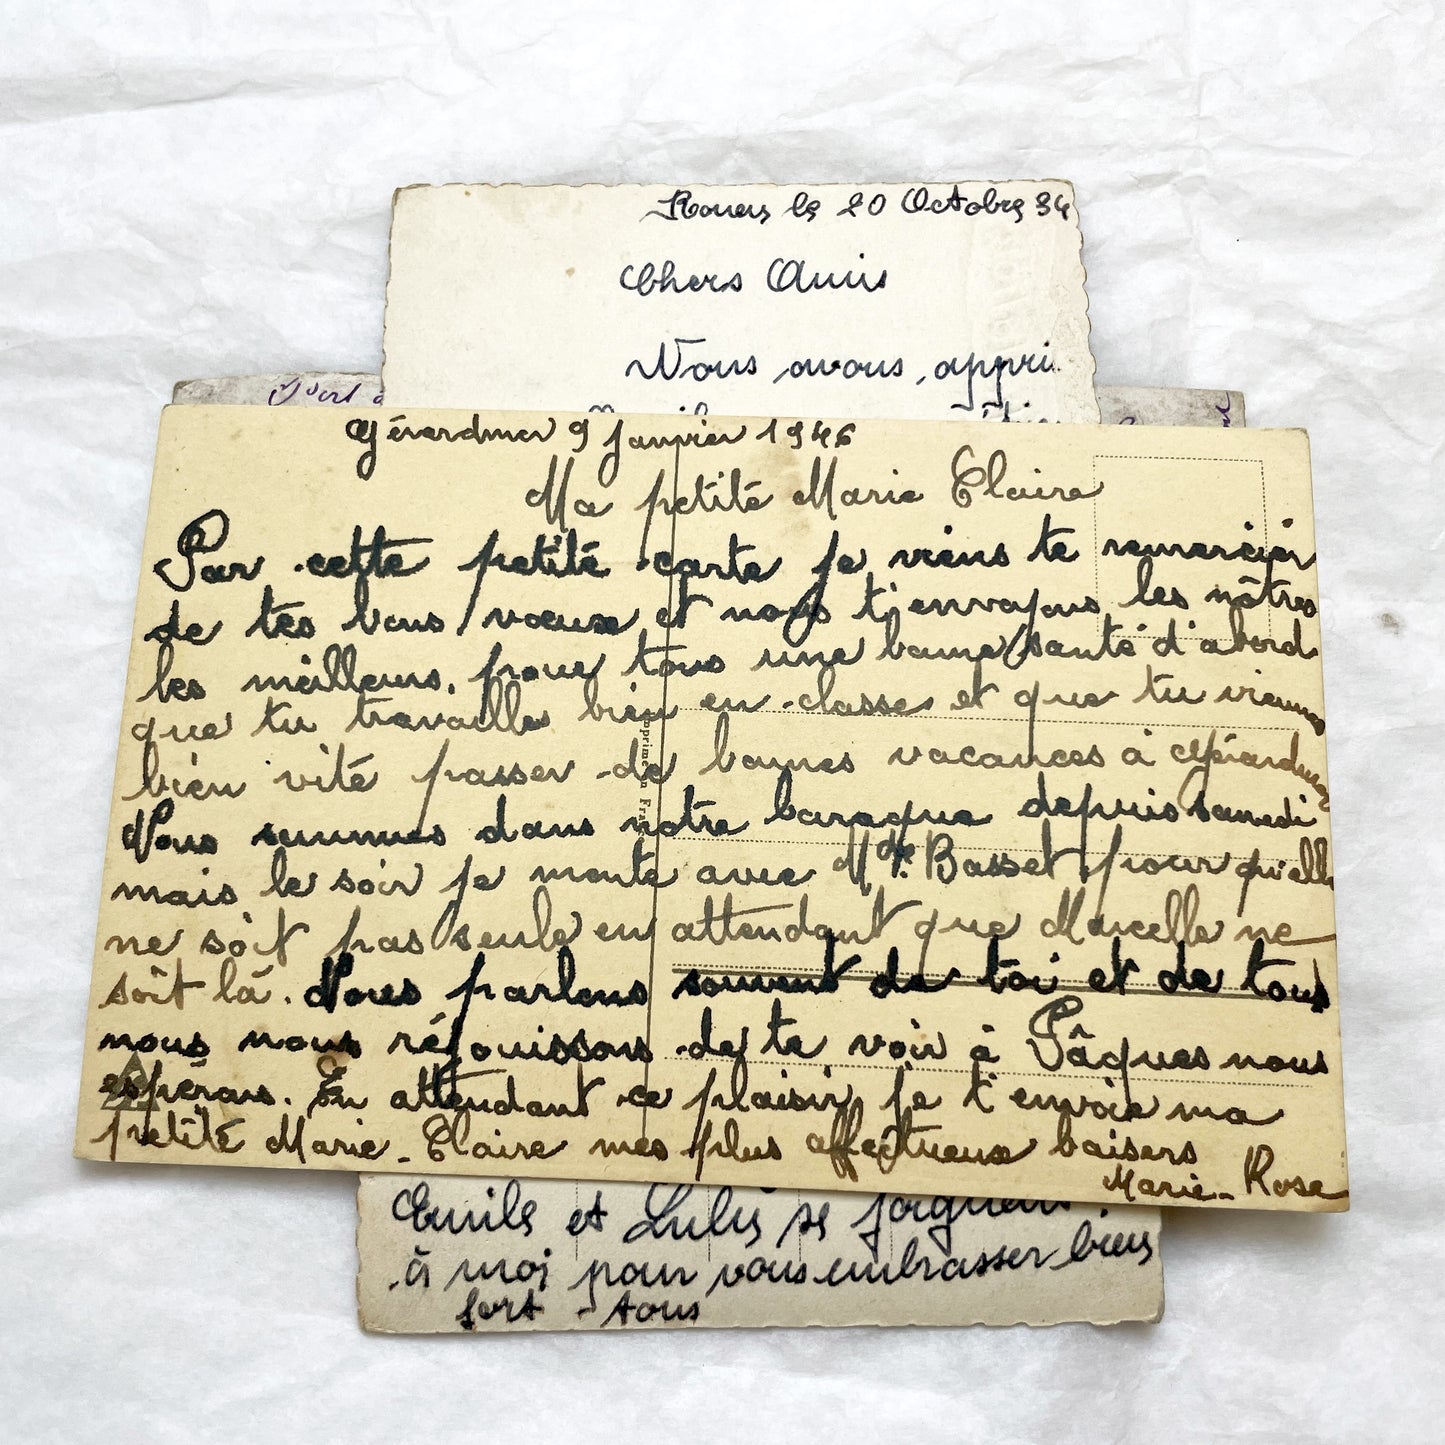 Rouen le 20 Octobre 34
Chers Amis
Nous avons appri
Gérardmer 9 Janvier 1946
Ma petite Marie Claire
Par cette petite carte je viens te remercier
de tes bons voeux et nous t'envoyons les nôtres
les meilleurs, pour tous une bonne santé d'abord
que tu travailles bien en classe et que tu viennes
bien vite passer de bonnes vacances à Gérardmer
Nous sommes dans notre baraque depuis samedi
mais le soir je monte avec Mde. Basset pour qu'elle
ne soit pas seule en attendant que Marcelle ne
soit là. Nous parlons souvent de toi et de tous
nous nous réjouissons de te voir à Pâques nous
espérons. En attendant ce plaisir je t'envoie ma
petite Marie-Claire mes plus affectueux baisers
Marie-Rose
Emile et Lulu se joignent
à moi pour vous embrasser bien
fort tous